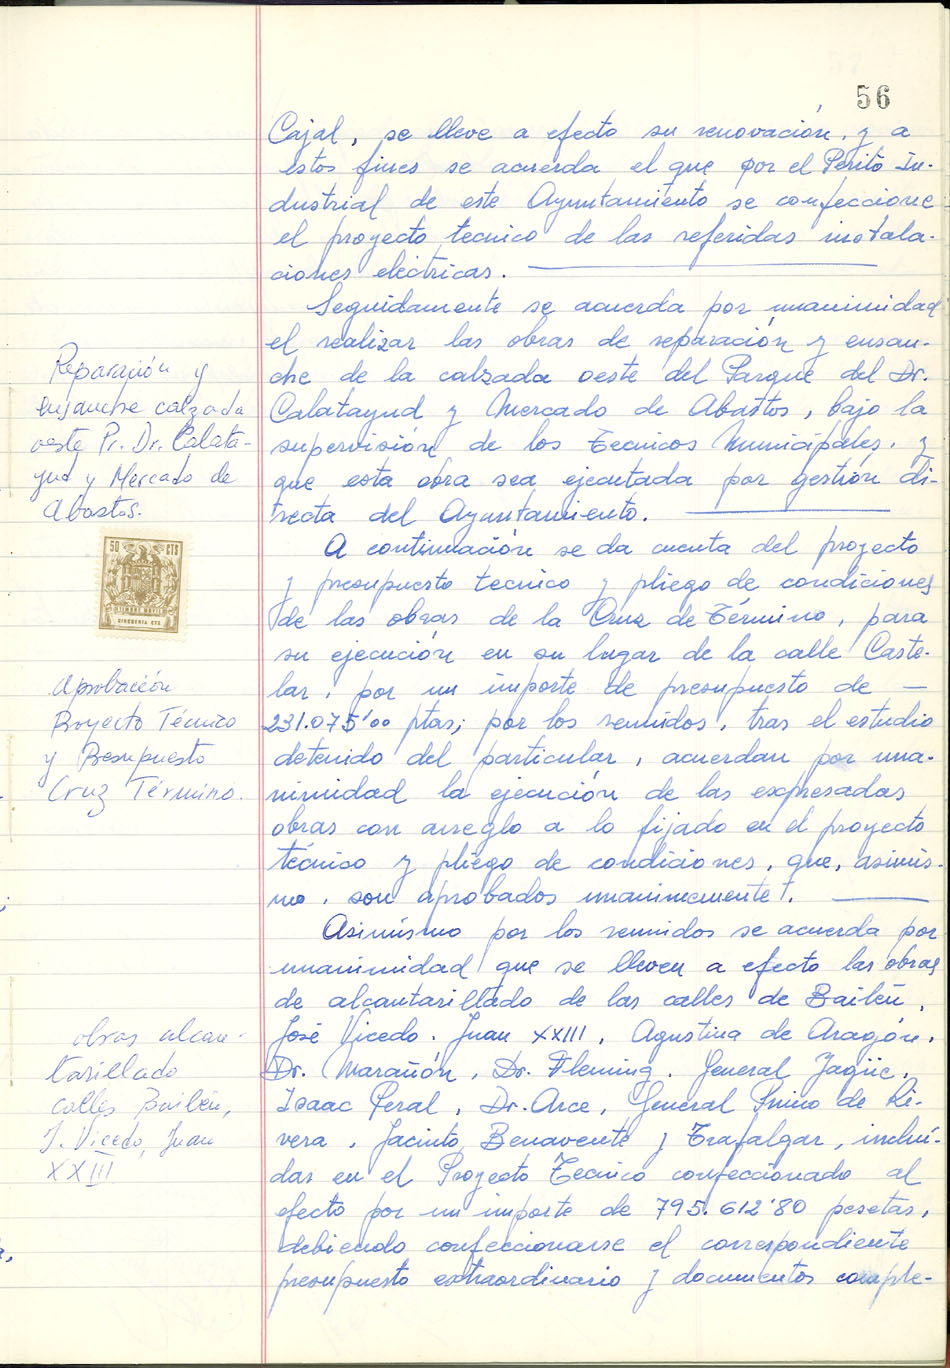 56
Cajal, se lleve a efecto su renovación, y a
estos fines se acuerda el que por el Perito In-
dustrial de este Ayuntamiento se confeccione
el proyecto tecnico de las referidas instala-
ciones eléctricas.
Seguidamente se acuerda por unanimidad
el realizar las obras de reparación y ensan-
che de la calzada oeste del Parque del Dr.
Calatayud y Mercado de Abastos, bajo la
supervisión de los Tecnicos Municipales, y
que esta obra sea ejecutada por gestión di-
recta del Ayuntamiento.
A continuación se da cuenta del proyecto
y presupuesto tecnico y pliego de condiciones
de las obras de la Cruz de Término, para
su ejecución en su lugar de la calle Caste-
lar, por un importe de presupuesto de —
231.075'00 ptas; por los reunidos, tras el estudio
detenido del particular, acuerdan por una-
nimidad la ejecución de las expresadas
obras con arreglo a lo fijado en el proyecto
técnico y pliego de condiciones, que, asimis-
mo, son aprobados unanimemente.
Asimismo por los reunidos se acuerda por
unanimidad que se lleven a efecto las obras
de alcantarillado de las calles de Bailén,
José Vicedo, Juan XXIII, Agustina de Aragón,
Dr. Marañón, Dr. Fleming, General Yagüe,
Isaac Peral, Dr. Arce, General Primo de Ri-
vera, Jacinto Benavente y Trafalgar, incluí-
das en el Proyecto Tecnico confeccionado al
efecto por un importe de 795.612'80 pesetas,
debiendo confeccionarse el correspondiente
presupuesto extraordinario y documentos comple-
Reparación y
ensanche calzada
oeste Pr. Dr. Calata-
yud y Mercado de
Abastos.
50 CTS
CINCUENTA CTS
Aprobación
Proyecto Técnico
y Presupuesto
Cruz Término.
obras alcan-
tarillado
calles Bailén,
J. Vicedo, Juan
XXIII